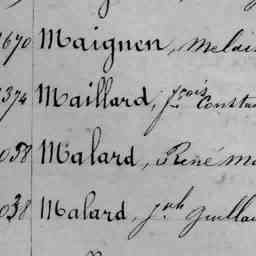 670 Maignen, Melai
374 Maillard, fçois Consta
058 Malard, René Ma
038 Malard, Jph Guillau